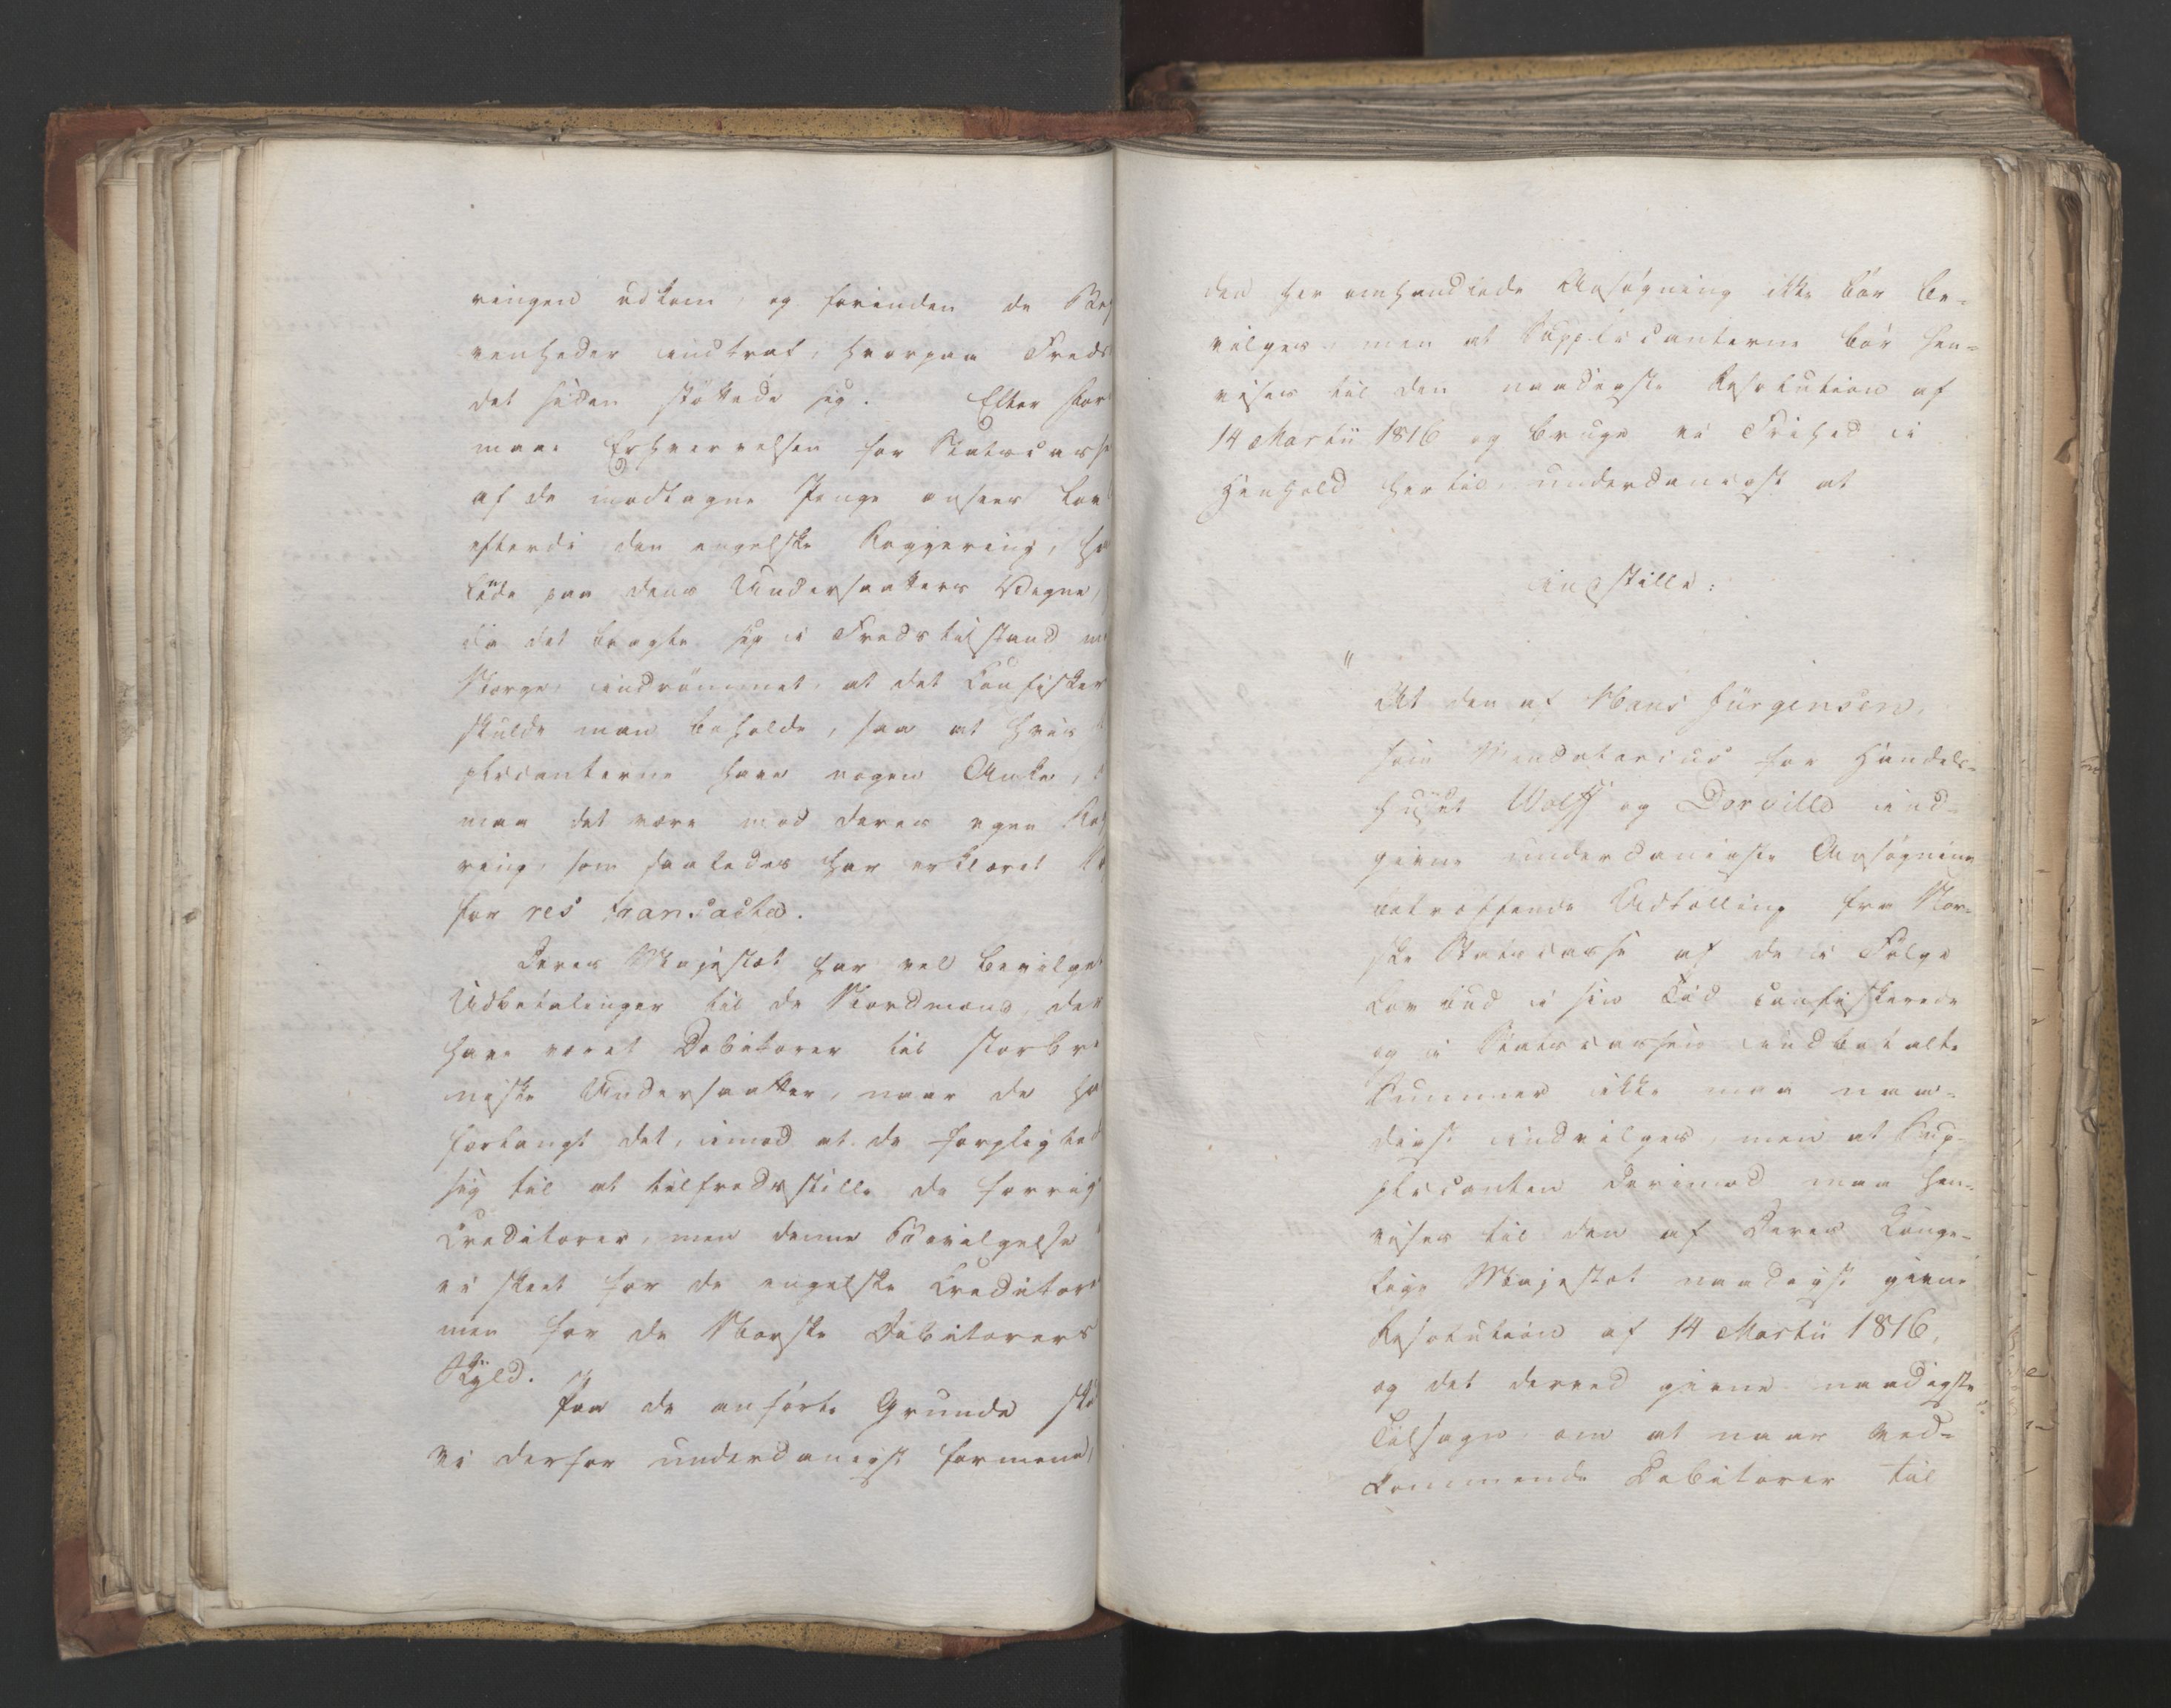 ringen udkom, og forinden de Beg
venheder indtraf, hvorpaa Freds
det siden støttede sig. Efter
maae Erhvervelsen for Statscasse
af de modtagne Penge ansees
efterdi den engelske Reggjering, ha
lende paa dens Undersaatters Vegne,
da det bragte sig i Fredstilstand
Norge, indrømmet, at det Confisker
skulde man beholde, saa at hvis
plicanterne have nogen Anke,
maa det være mod deres egen Reg
ring, som saaledes har erklæret
for res transacta.
Deres Majestæt har vel bevilget
Udbetalinger til de Nordmænd, der
have været Debitorer til storbri
niske Undersaatter, naar de ha
forlangt det, imod at de forpligted
sig til at tilfredsstille de forrig
Creditorer, men denne Bevilgelse
ei skeet for de engelske Creditore
men for de Norske Debitorers
Skyld.
Paa de anførte Grunde
vi derfor underdanigst formene,
den her omhandlede Ansøgning ikke bør be-
vilges, men at Supplicanterne bør hen-
vises til den naadigste Resolution af
14 Martii 1816 og bruge vi Frihed i
Henhold hertil, underdanigst at
indstille:
"
At den af Hans Jürgensen,
som Mandatarius for Handels-
huset Wolff og Dorville ind-
givne underdanigste Ansøgning
betræffende Udtælling fra Nor-
ske Statscasse af de i Følge
Lov  i sin Tid confiskerede
og i Statscassen indbetalte
Summer ikke maa naa-
digst indvilges, men at Sup-
plicanten derimod maa hen-
vises til den af Deres Konge-
lige Majestæt naadigst givne
Resolution af 14 Martii 1816,
og det derved givne naadigste
Tilsagn om at naar ved-
kommende Debitorer til